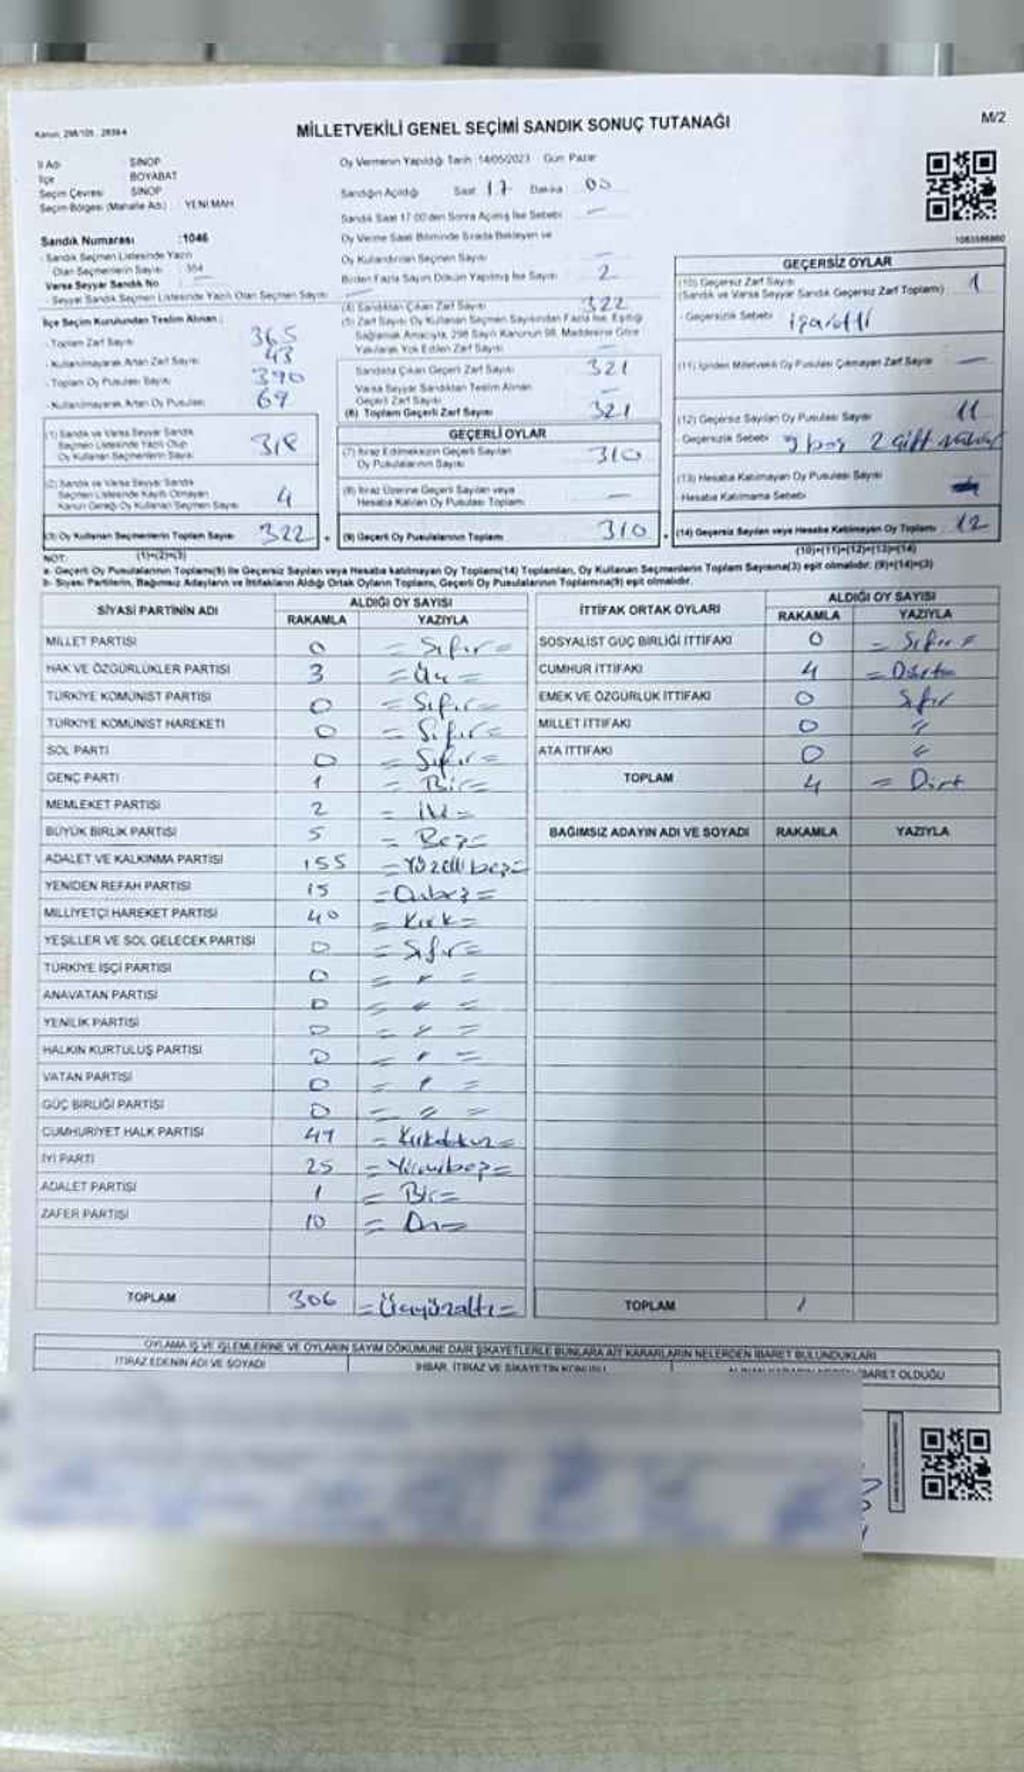 Kanun: 298/105 - 2839/4
MİLLETVEKİLİ GENEL SEÇİMİ SANDIK SONUÇ TUTANAĞI
M/2
İl Adı SİNOP
İlçe BOYABAT
Seçim Çevresi SİNOP
Seçim Bölgesi (Mahalle Adı) YENİ MAH
Sandık Numarası :1046
- Sandık Seçmen Listesinde Yazılı
Olan Seçmenlerin Sayısı : 354
Varsa Seyyar Sandık No
- Seyyar Sandık Seçmen Listesinde Yazılı Olan Seçmen Sayısı
İlçe Seçim Kurulundan Teslim Alınan :
- Toplam Zarf Sayısı 365
- Kullanılmayarak Artan Zarf Sayısı 43
- Toplam Oy Pusulası Sayısı 390
- Kullanılmayarak Artan Oy Pusulası 69
(1) Sandık ve Varsa Seyyar Sandık
Seçmen Listesinde Yazılı Olup
Oy Kullanan Seçmenlerin Sayısı 318
(2) Sandık ve Varsa Seyyar Sandık
Seçmen Listesinde Kayıtlı Olmayan
Kanun Gereği Oy Kullanan Seçmen Sayısı 4
(3) Oy Kullanan Seçmenlerin Toplam Sayısı 322
(1)+(2)=(3)
Oy Vermenin Yapıldığı Tarih : 14/05/2023 Gün Pazar
Sandığın Açıldığı Saat 17 Dakika 00
Sandık Saat 17:00'den Sonra Açılmış İse Sebebi —
Oy Verme Saati Bitiminde Sırada Bekleyen ve
Oy Kullandırılan Seçmen Sayısı —
Birden Fazla Sayım Döküm Yapılmış İse Sayısı 2
(4) Sandıktan Çıkan Zarf Sayısı 322
(5) Zarf Sayısı Oy Kullanan Seçmen Sayısından Fazla İse, Eşitliği
Sağlamak Amacıyla, 298 Sayılı Kanunun 98. Maddesine Göre
Yakılarak Yok Edilen Zarf Sayısı —
Sandıkta Çıkan Geçerli Zarf Sayısı 321
Varsa Seyyar Sandıktan Teslim Alınan
Geçerli Zarf Sayısı —
(6) Toplam Geçerli Zarf Sayısı 321
GEÇERLİ OYLAR
(7) İtiraz Edilmeksizin Geçerli Sayılan
Oy Pusulalarının Sayısı 310
(8) İtiraz Üzerine Geçerli Sayılan veya
Hesaba Katılan Oy Pusulası Toplamı —
(9) Geçerli Oy Pusulalarının Toplamı 310
1083586860
GEÇERSİZ OYLAR
(10) Geçersiz Zarf Sayısı 1
(Sandık ve Varsa Seyyar Sandık Geçersiz Zarf Toplamı)
- Geçersizlik Sebebi işaretli
(11) İçinden Milletvekili Oy Pusulası Çıkmayan Zarf Sayısı —
(12) Geçersiz Sayılan Oy Pusulası Sayısı 11
- Geçersizlik Sebebi 9 boş 2 çift
(13) Hesaba Katılmayan Oy Pusulası Sayısı
- Hesaba Katılmama Sebebi
(14) Geçersiz Sayılan veya Hesaba Katılmayan Oy Toplamı 12
(10)+(11)+(12)+(13)=(14)
NOT:
a- Geçerli Oy Pusulalarının Toplamı(9) ile Geçersiz Sayılan veya Hesaba katılmayan Oy Toplamı(14) Toplamları, Oy Kullanan Seçmenlerin Toplam Sayısına(3) eşit olmalıdır. (9)+(14)=(3)
b- Siyasi Partilerin, Bağımsız Adayların ve İttifakların Aldığı Ortak Oyların Toplamı, Geçerli Oy Pusulalarının Toplamına(9) eşit olmalıdır.
SİYASİ PARTİNİN ADI ALDIĞI OY SAYISI
RAKAMLA YAZIYLA
MİLLET PARTİSİ 0 = Sıfır =
HAK VE ÖZGÜRLÜKLER PARTİSİ 3 = Üç =
TÜRKİYE KOMÜNİST PARTİSİ 0 = Sıfır =
TÜRKİYE KOMÜNİST HAREKETİ 0 = Sıfır =
SOL PARTİ 0 = Sıfır =
GENÇ PARTİ 1 = Bir =
MEMLEKET PARTİSİ 2 = İki =
BÜYÜK BİRLİK PARTİSİ 5 = Beş =
ADALET VE KALKINMA PARTİSİ 155 = Yüzelli beş =
YENİDEN REFAH PARTİSİ 15 = Onbeş =
MİLLİYETÇİ HAREKET PARTİSİ 40 = Kırk =
YEŞİLLER VE SOL GELECEK PARTİSİ 0 = Sıfır =
TÜRKİYE İŞÇİ PARTİSİ 0 = " =
ANAVATAN PARTİSİ 0 = " =
YENİLİK PARTİSİ 0 = " =
HALKIN KURTULUŞ PARTİSİ 0 = " =
VATAN PARTİSİ 0 = " =
GÜÇ BİRLİĞİ PARTİSİ 0 = " =
CUMHURİYET HALK PARTİSİ 49 = Kırkdokuz =
İYİ PARTİ 25 = Yirmibeş =
ADALET PARTİSİ 1 = Bir =
ZAFER PARTİSİ 10 = On =
TOPLAM 306 = Üçyüzaltı =
İTTİFAK ORTAK OYLARI ALDIĞI OY SAYISI
RAKAMLA YAZIYLA
SOSYALİST GÜÇ BİRLİĞİ İTTİFAKI 0 = Sıfır =
CUMHUR İTTİFAKI 4 = Dört =
EMEK VE ÖZGÜRLÜK İTTİFAKI 0 Sıfır
MİLLET İTTİFAKI 0 "
ATA İTTİFAKI 0 "
TOPLAM 4 = Dört
BAĞIMSIZ ADAYIN ADI VE SOYADI RAKAMLA YAZIYLA
TOPLAM /
OYLAMA İŞ VE İŞLEMLERİNE VE OYLARIN SAYIM DÖKÜMÜNE DAİR ŞİKAYETLERLE BUNLARA AİT KARARLARIN NELERDEN İBARET BULUNDUKLARI
İTİRAZ EDENİN ADI VE SOYADI İHBAR, İTİRAZ VE ŞİKAYETİN KONUSU İBARET OLDUĞU